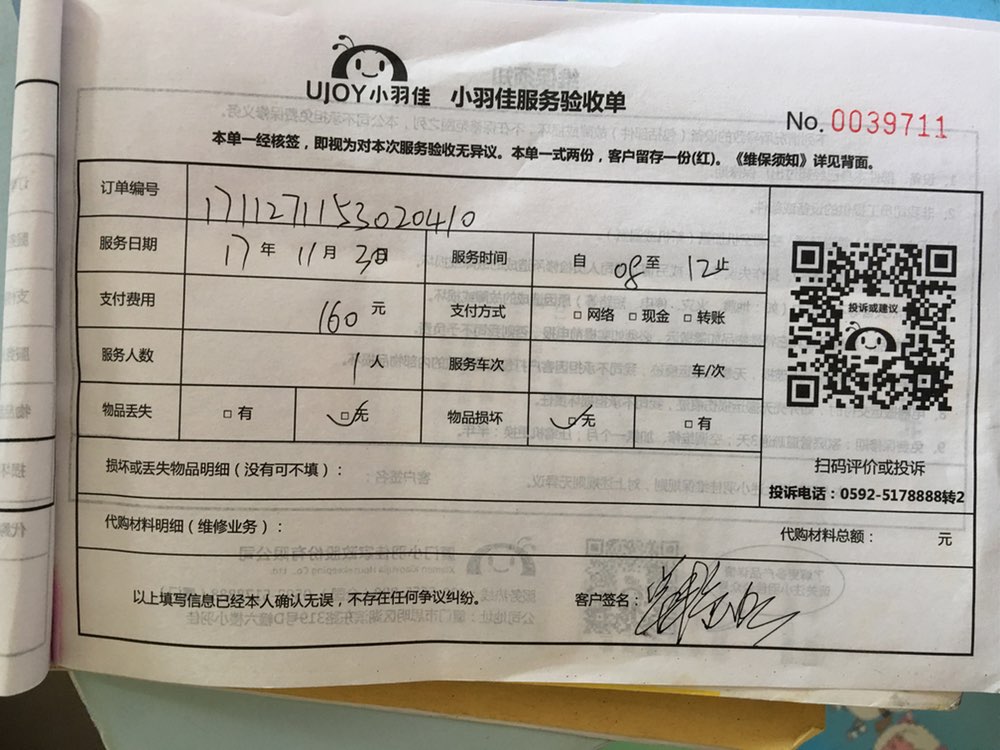 UJOY小羽佳 小羽佳服务验收单
No. 0039711
本单一经核签，即视为对本次服务验收无异议。本单一式两份，客户留存一份(红)。《维保须知》详见背面。
订单编号 1711271153020410
服务日期 17 年 11 月 30日 服务时间 自 08 至 12 止
支付费用 160 元 支付方式 □ 网络 □ 现金 □ 转账
服务人数 1 人 服务车次 车/次
物品丢失 □ 有 □ 无 物品损坏 □ 无 □ 有
投诉或建议
扫码评价或投诉
投诉电话：0592-5178888转2
损坏或丢失物品明细（没有可不填）：
代购材料明细（维修业务）： 代购材料总额： 元
以上填写信息已经本人确认无误，不存在任何争议纠纷。 客户签名：